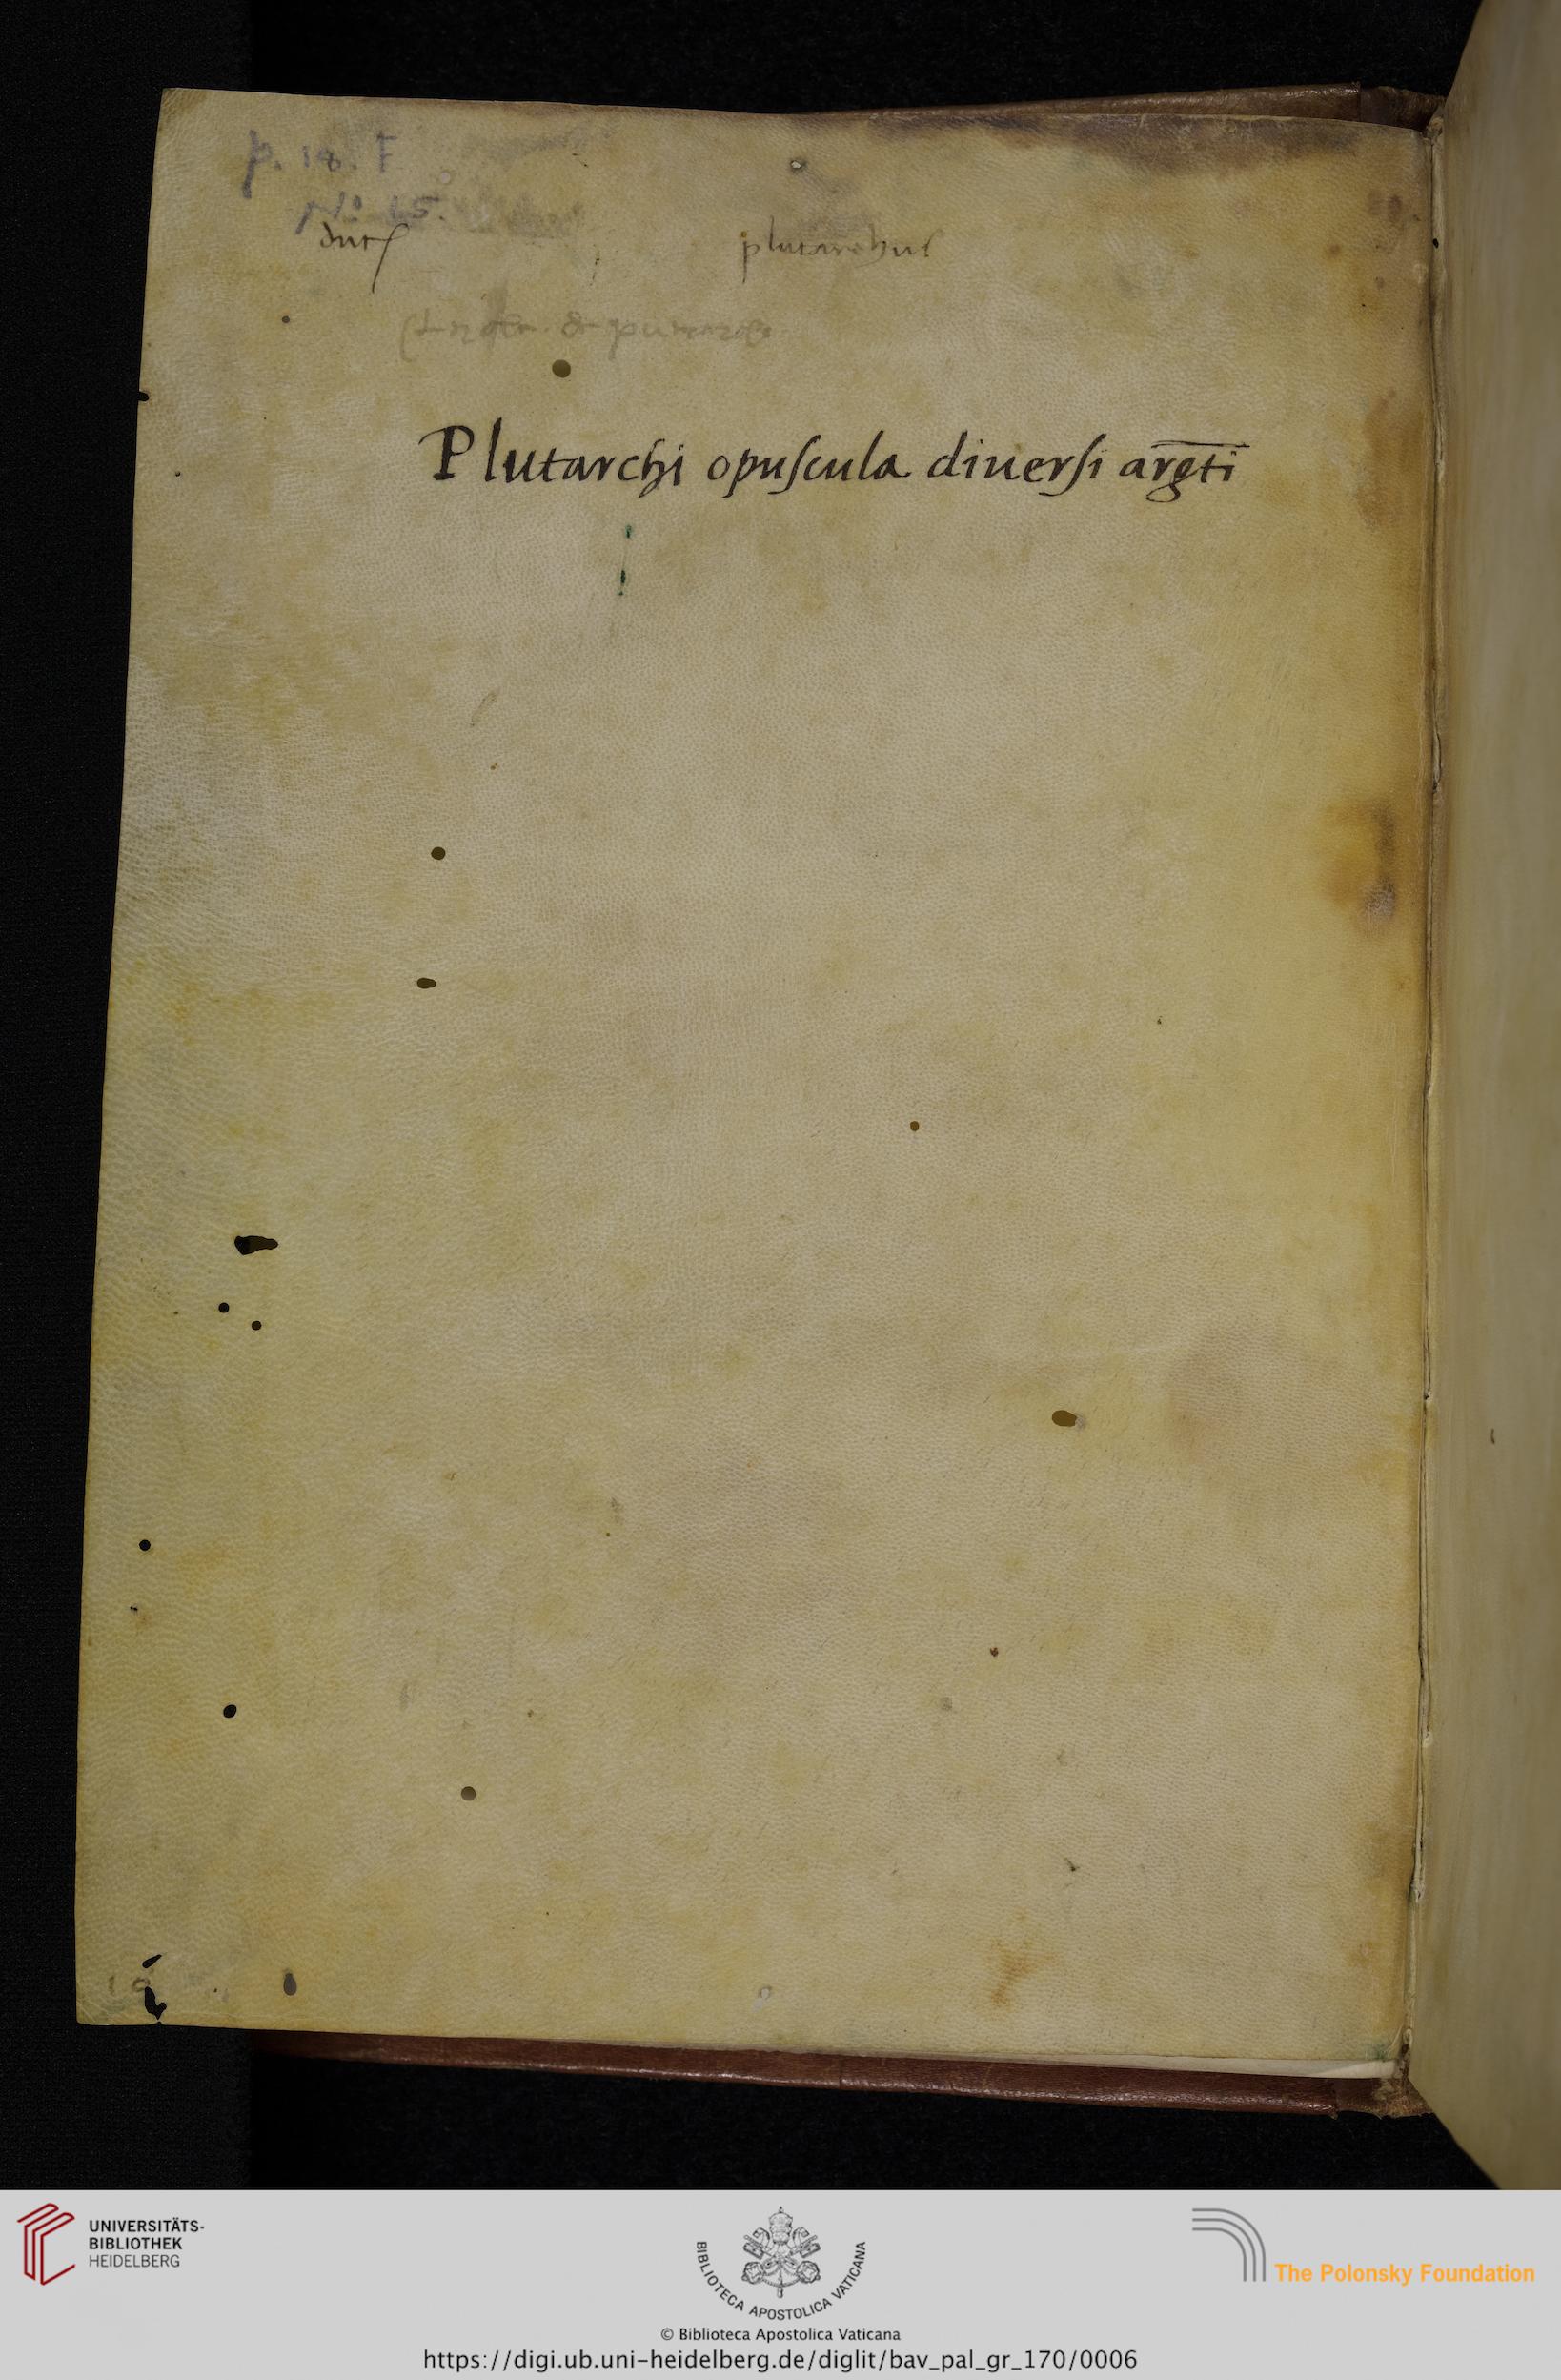 p. 18. F
No 15.
plutarchus
Plutarchi opuscula diuersi arg̅ti̅
UNIVERSITÄTS-
BIBLIOTHEK
HEIDELBERG
BIBLIOTECA APOSTOLICA VATICANA
The Polonsky Foundation
© Biblioteca Apostolica Vaticana
https://digi.ub.uni-heidelberg.de/diglit/bav_pal_gr_170/0006